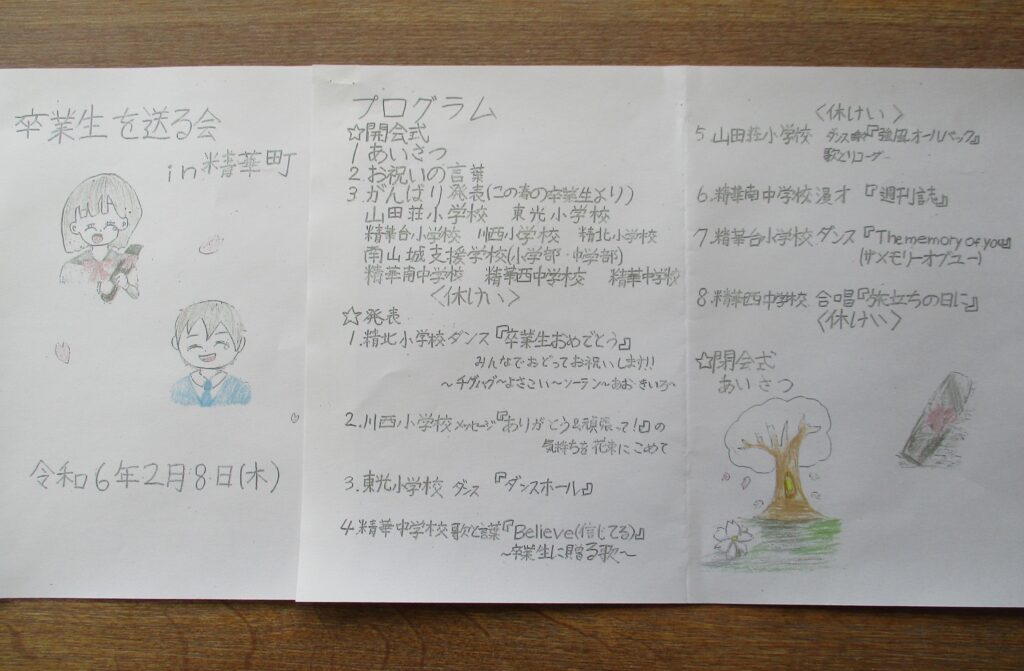 卒業生を送る会
in精華町
令和6年2月8日(木)
プログラム
☆開会式
1 あいさつ
2 お祝いの言葉
3 がんばり発表(この春の卒業生より)
山田荘小学校 東光小学校
精華台小学校 川西小学校 精北小学校
南山城支援学校(小学部・中学部)
精華南中学校 精華西中学校 精華中学校
〈休けい〉
☆発表
1.精北小学校 ダンス『卒業生おめでとう』
みんなでおどってお祝いします!!
～チグハグ～よさこい～ソーラン～あお・きいろ～
2.川西小学校 メッセージ『ありがとう&頑張って!』の
気持ちを花束にこめて
3.東光小学校 ダンス『ダンスホール』
4.精華中学校 歌と言葉『Believe(信じてる)』
～卒業生に贈る歌～
〈休けい〉
5.山田荘小学校 ダンス『強風オールバック』
歌とリコーダー
6.精華南中学校 漫才『週刊誌』
7.精華台小学校 ダンス『The memory of you』
(ザメモリーオブユー)
8.精華西中学校 合唱『旅立ちの日に』
〈休けい〉
☆閉会式
あいさつ